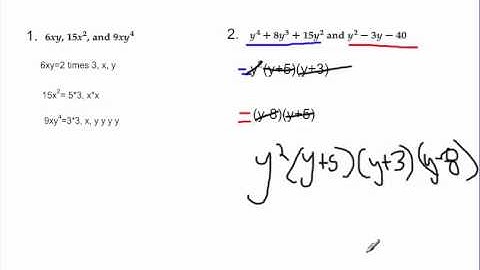 1. 6xy, 15x², and 9xy⁴
6xy=2 times 3, x, y
15x²= 5*3, x*x
9xy⁴=3*3, x, y y y y
2. y⁴ + 8y³ + 15y² and y² − 3y − 40
= y²(y+5)(y+3)
= (y-8)(y+5)
y²(y+5)(y+3)(y-8)